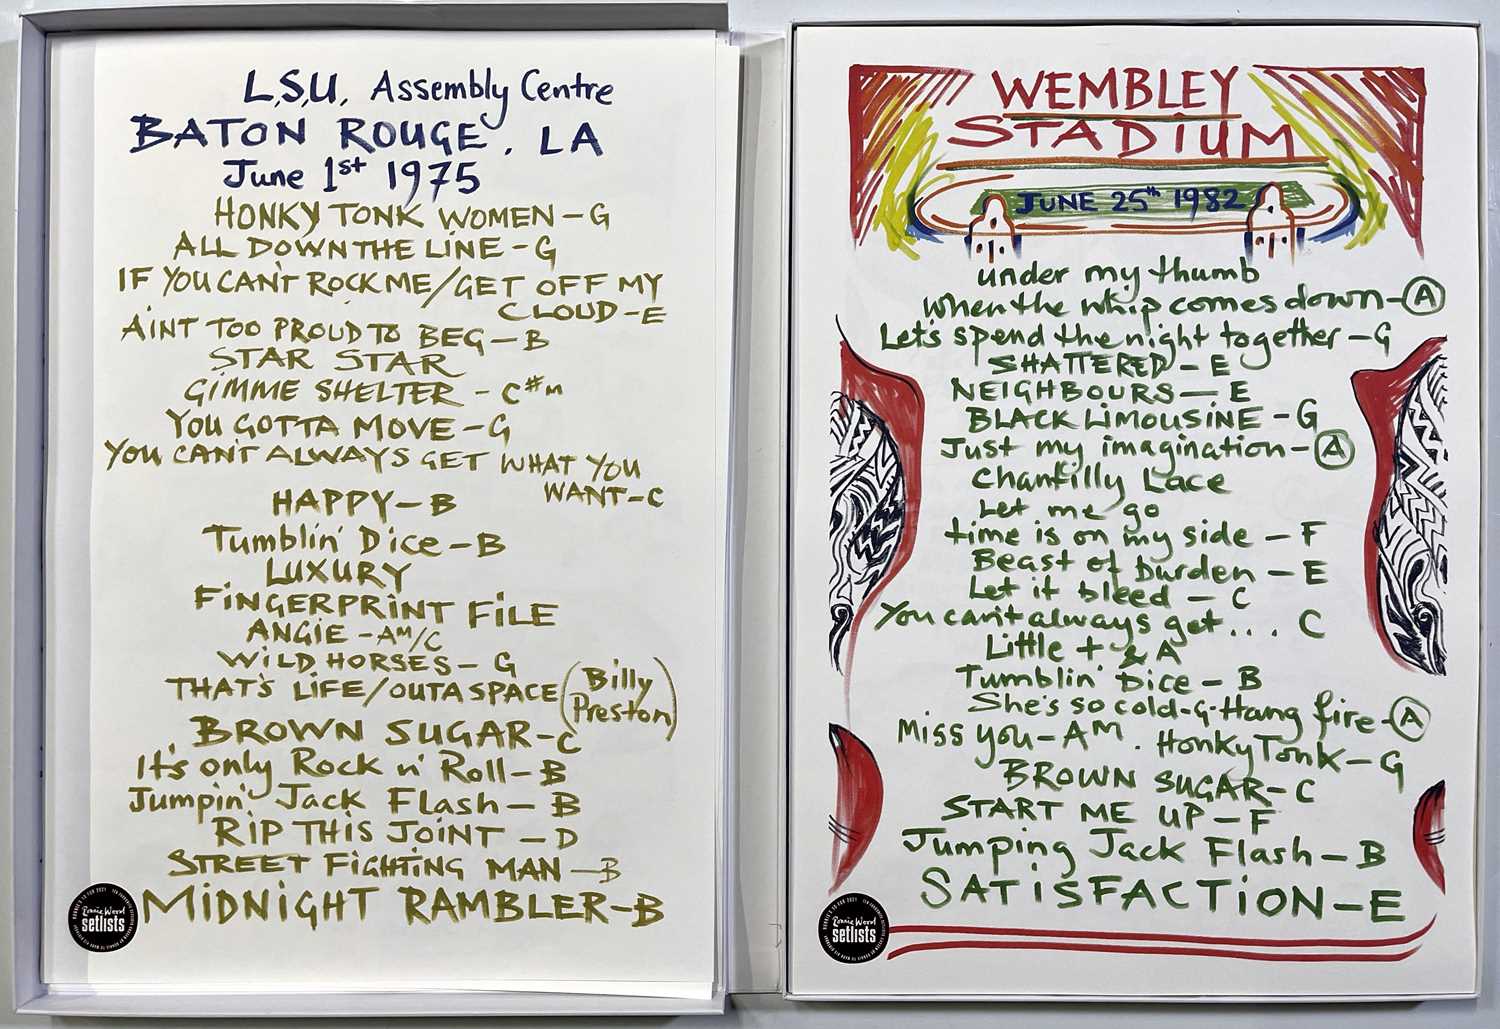 L.S.U. Assembly Centre
BATON ROUGE, LA
June 1st 1975
HONKY TONK WOMEN – G
ALL DOWN THE LINE – G
IF YOU CAN'T ROCK ME/GET OFF MY
CLOUD – E
AINT TOO PROUD TO BEG – B
STAR STAR
GIMME SHELTER – C#m
YOU GOTTA MOVE – G
YOU CAN'T ALWAYS GET WHAT YOU
WANT – C
HAPPY – B
Tumblin' Dice – B
LUXURY
FINGERPRINT FILE
ANGIE – AM/C
WILD HORSES – G
THAT'S LIFE/OUTASPACE (Billy
Preston)
BROWN SUGAR – C
It's only Rock n' Roll – B
Jumpin' Jack Flash – B
RIP THIS JOINT – D
STREET FIGHTING MAN – B
MIDNIGHT RAMBLER – B
Ronnie Wood
setlists
WEMBLEY
STADIUM
JUNE 25th 1982
under my thumb
when the whip comes down – A
Let's spend the night together – G
SHATTERED – E
NEIGHBOURS – E
BLACK LIMOUSINE – G
Just my imagination – A
Chantilly Lace
Let me go
time is on my side – F
Beast of burden – E
Let it bleed – C
You can't always get . . . C
Little t & A
Tumblin' Dice – B
She's so cold-G-Hang fire – A
Miss you – AM. Honky Tonk – G
BROWN SUGAR – C
START ME UP – F
Jumping Jack Flash – B
SATISFACTION – E
Ronnie Wood
setlists